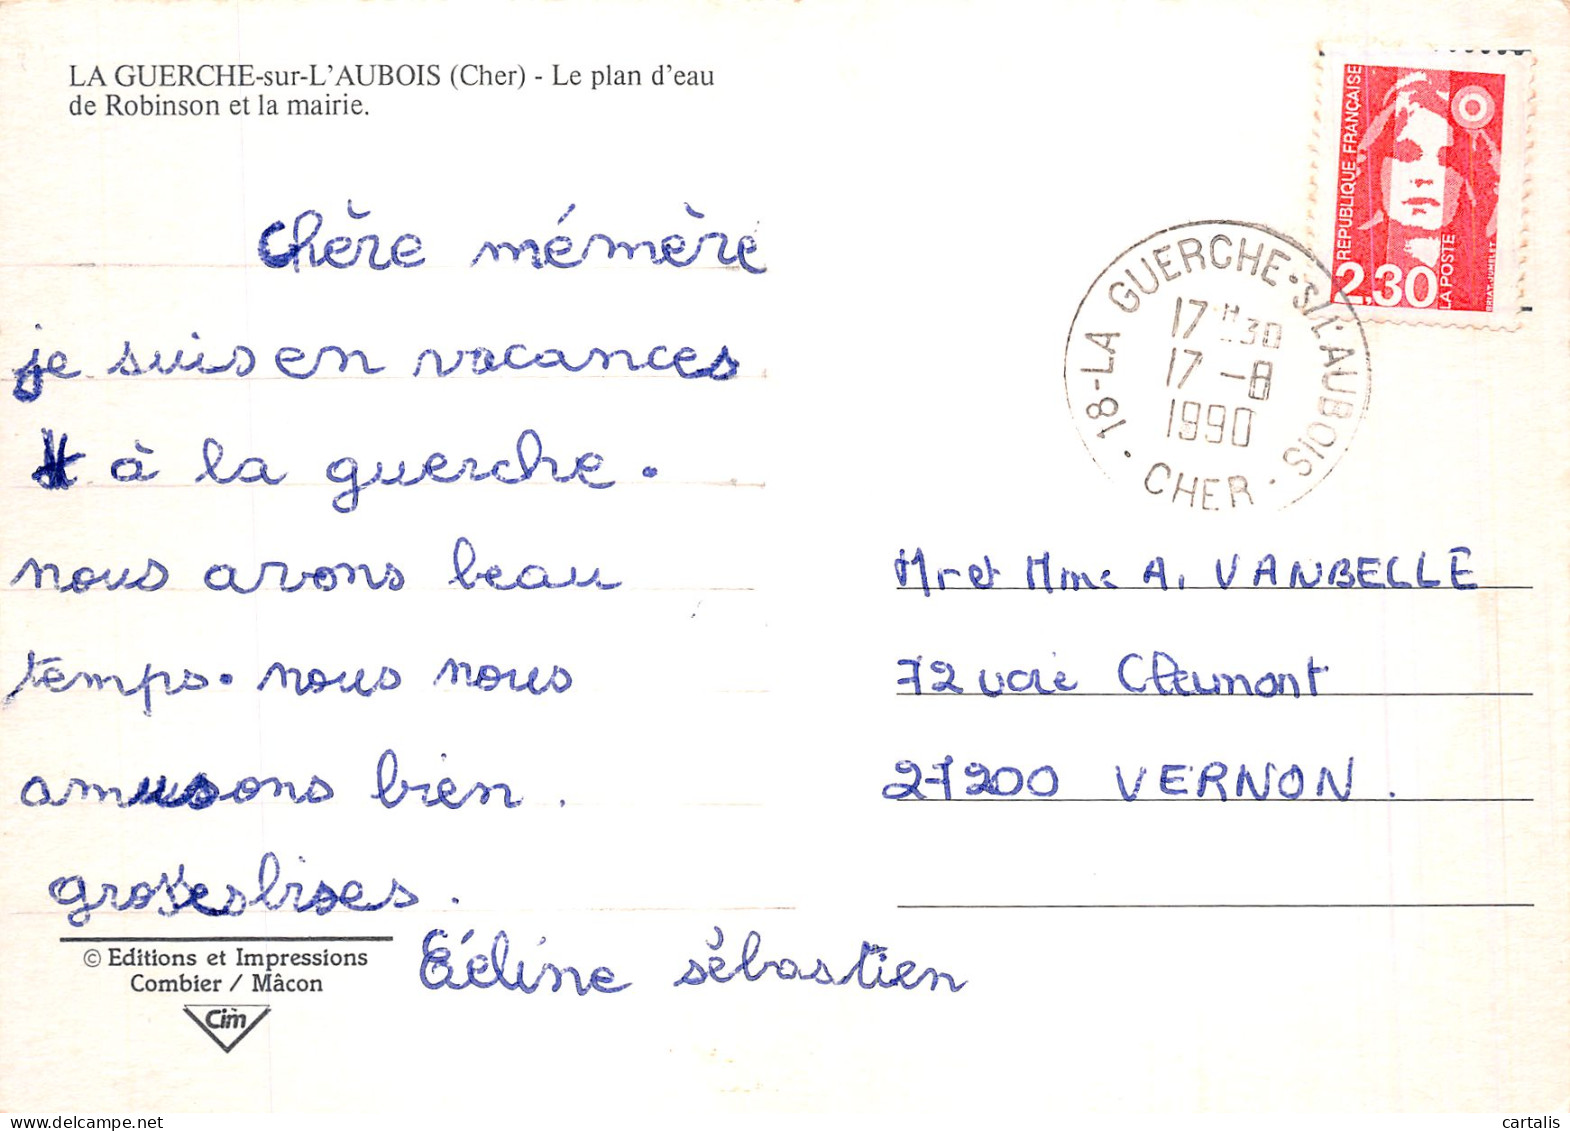 LA GUERCHE-sur-L'AUBOIS (Cher) - Le plan d'eau
de Robinson et la mairie.
REPUBLIQUE FRANÇAISE
2,30
LA POSTE
BRIAT-JUMELET
18-LA GUERCHE-S/L'AUBOIS
17H30
17-8
1990
CHER
Chère mémère
je suis en vacances
à la guerche.
nous avons beau
temps. nous nous
amusons bien.
grosses bises.
Céline sébastien
Mr et Mme A. VANBELLE
72 voie
27200 VERNON.
© Editions et Impressions
Combier / Mâcon
Cim
cartalis